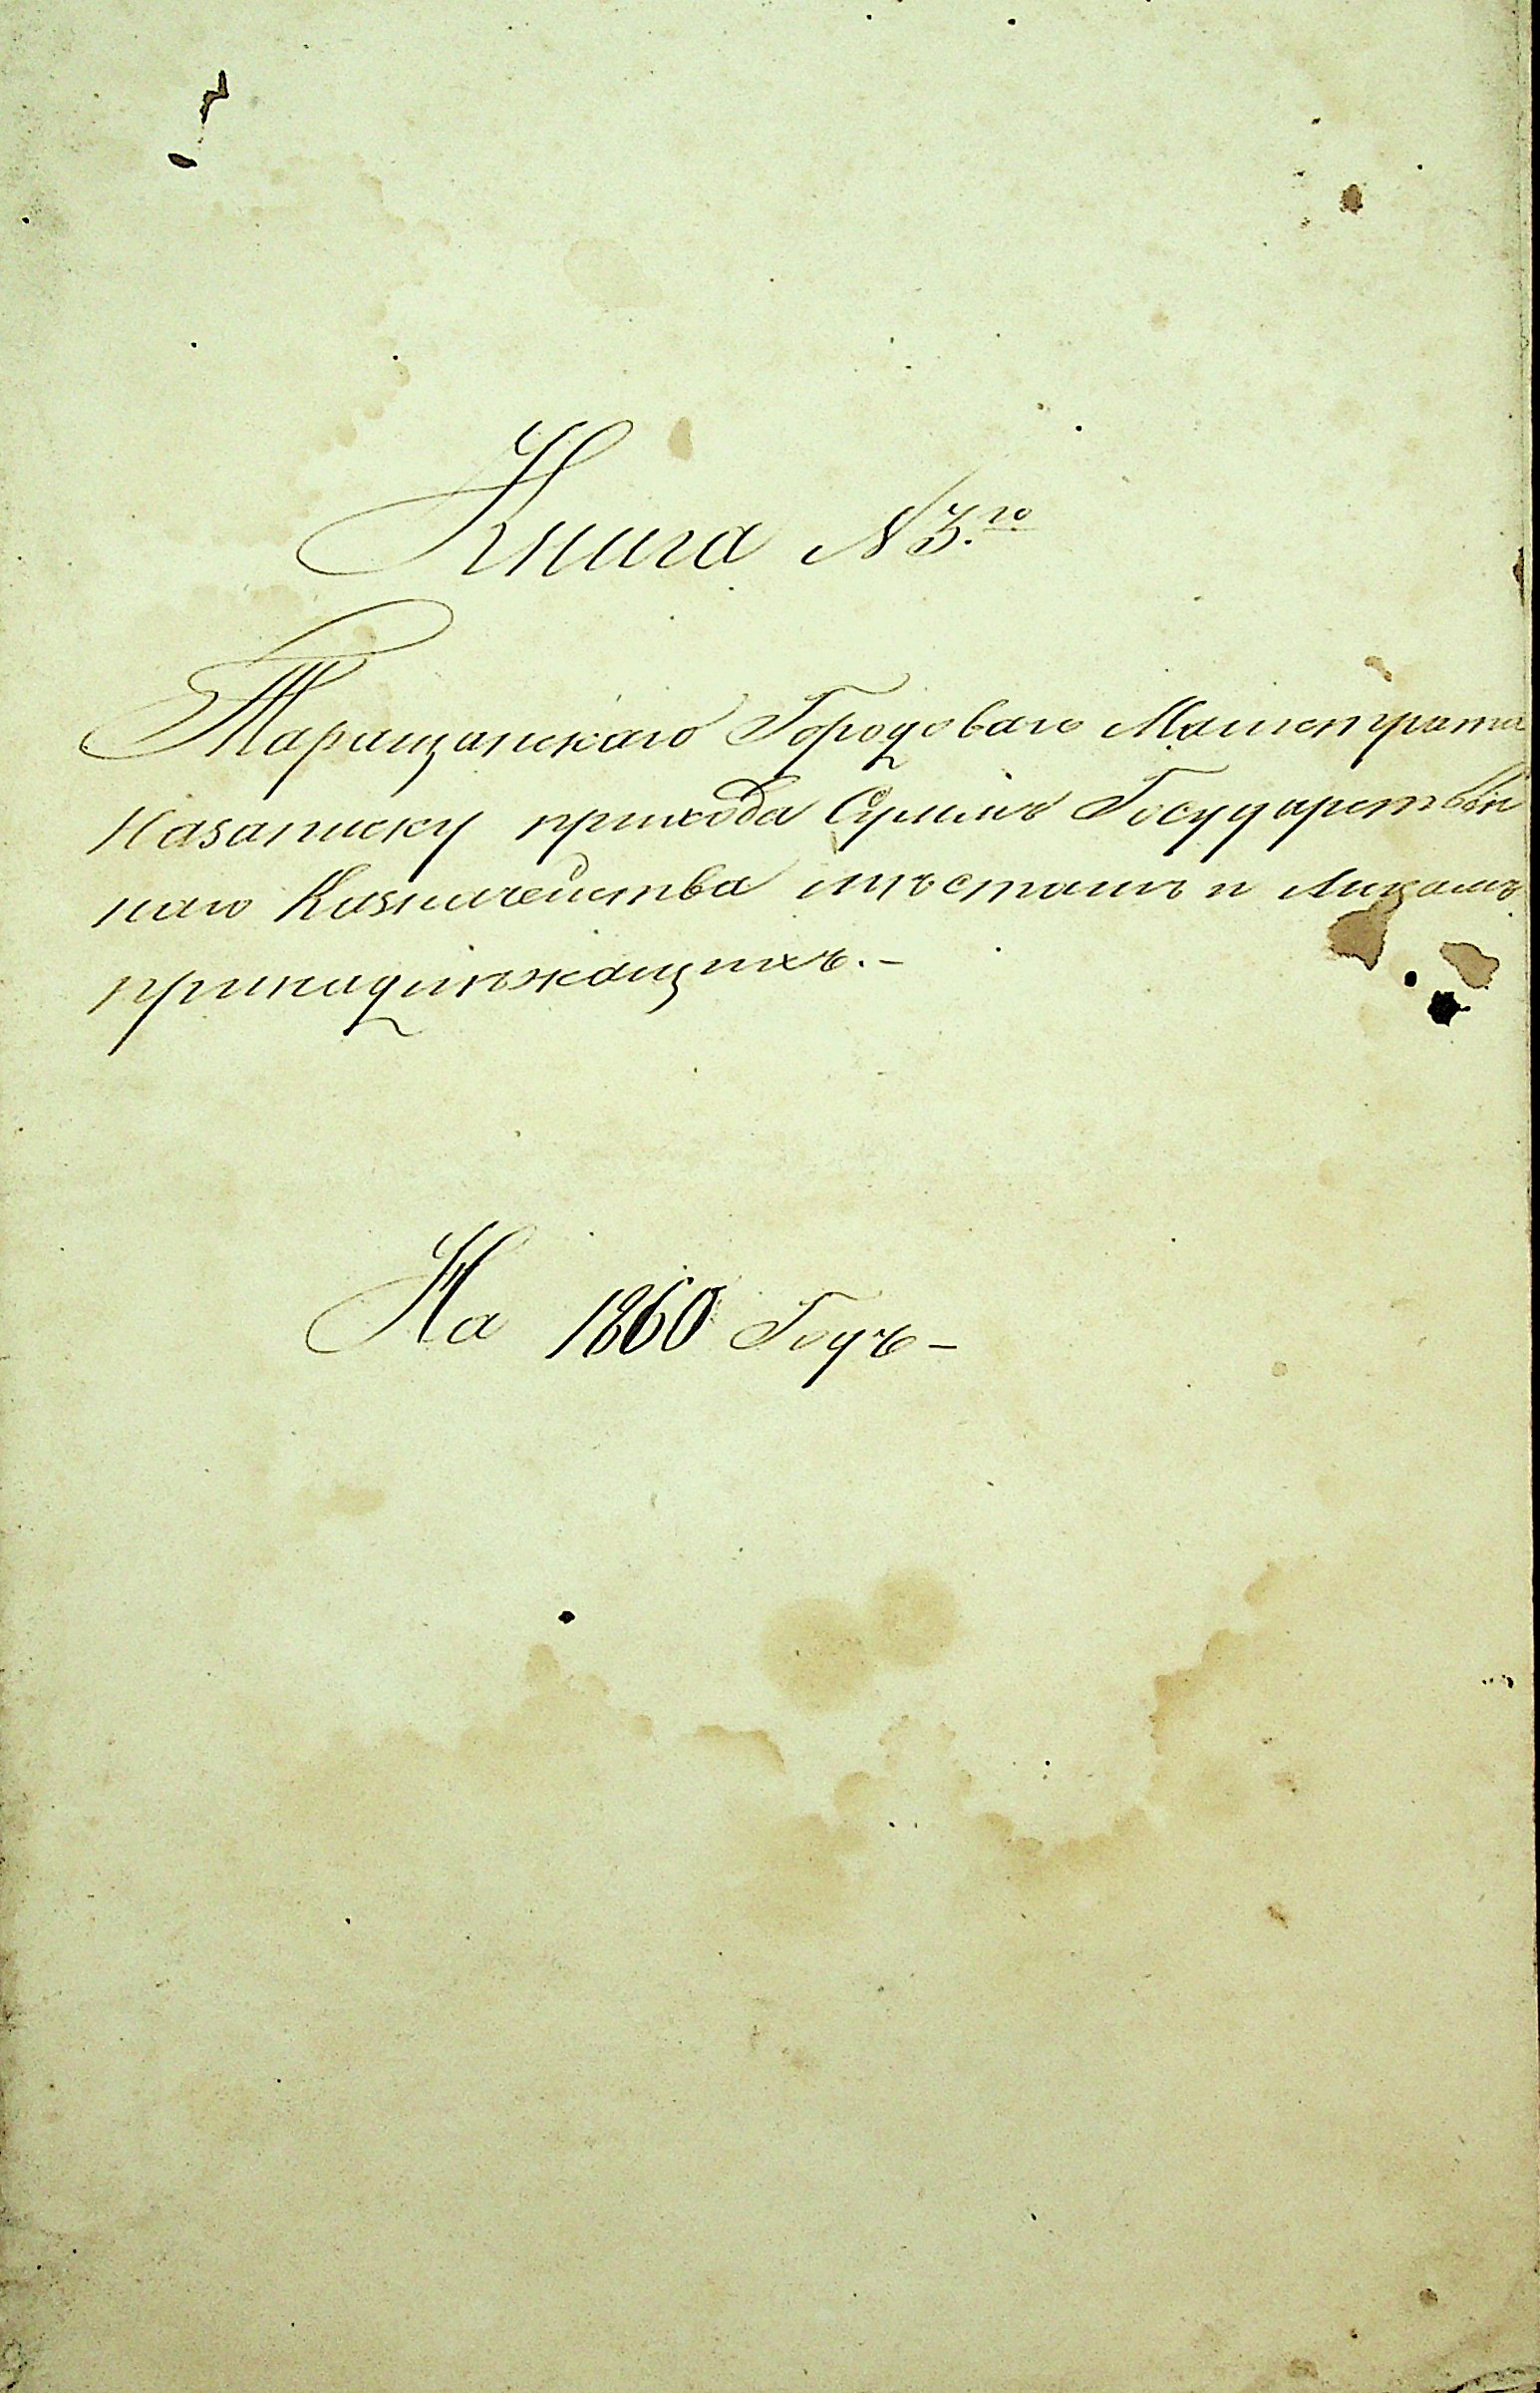 Книга №3.го
Таращанскаго Городоваго Магистрата
Назаписку прихода Суммъ Государствен
наго Казначейства мѣстамъ и Лицамъ
принадлѣжащихъ.-
На 1860 Годъ-